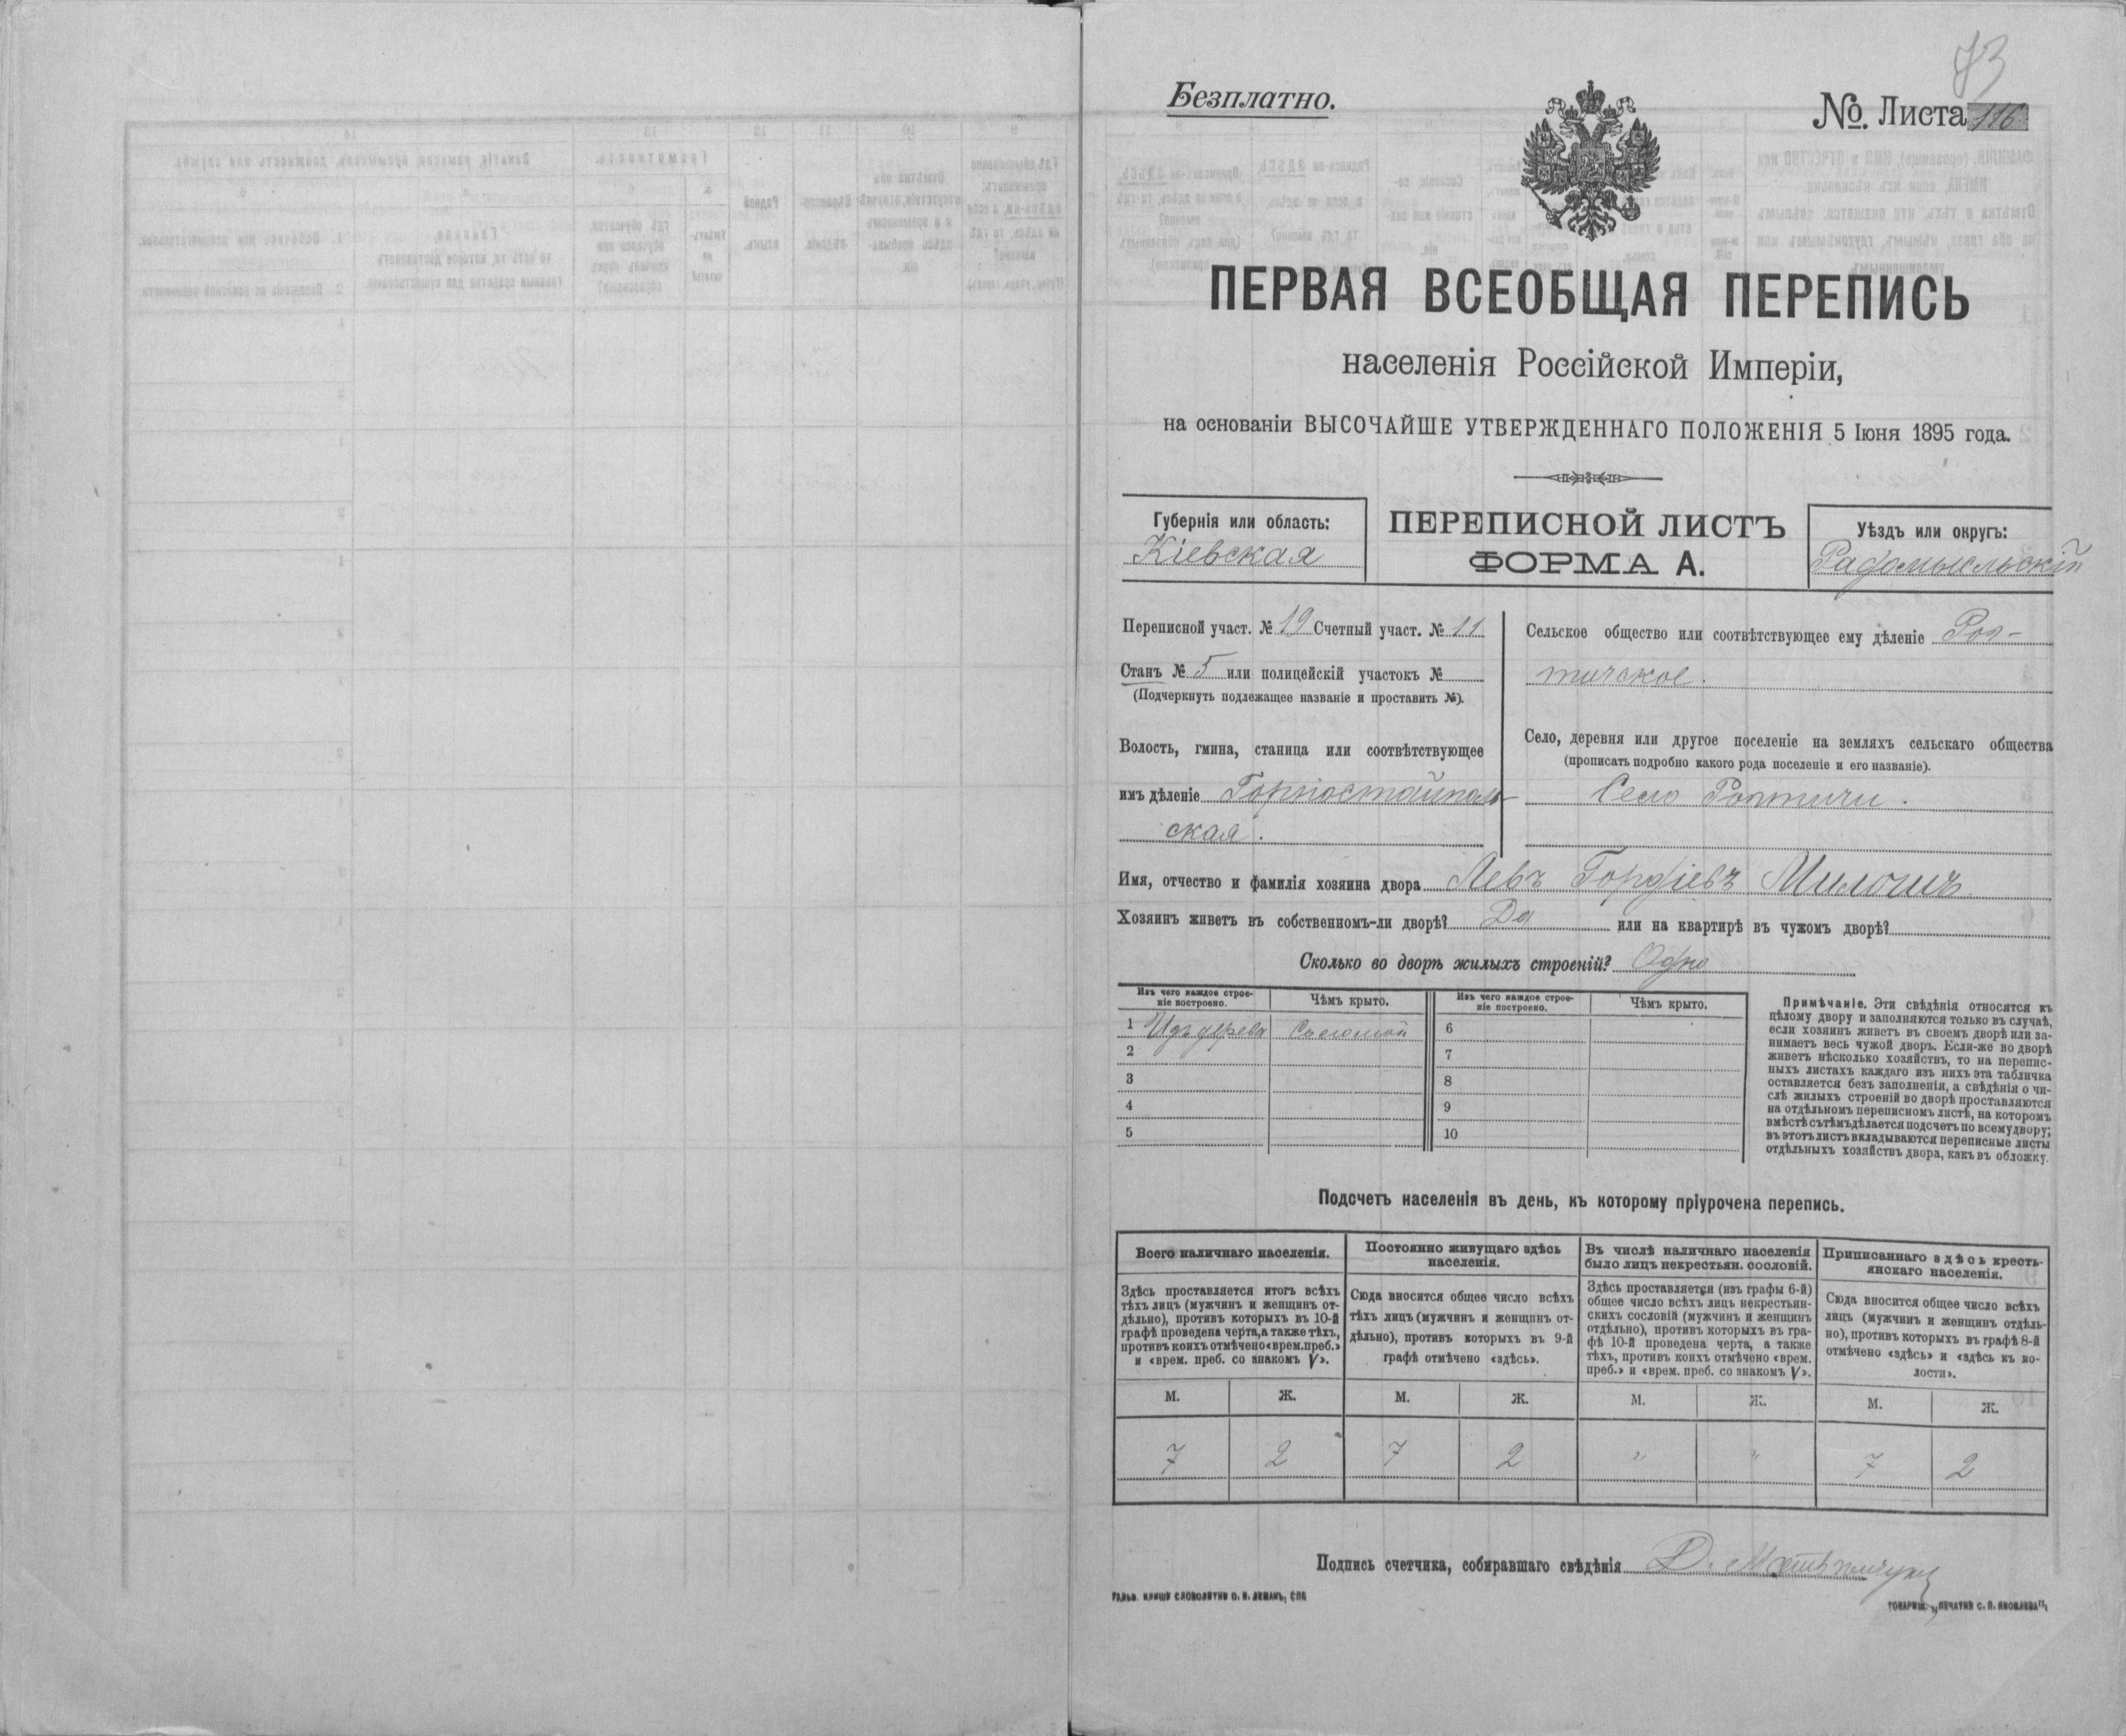 73
Безплатно.
№. Листа 116
ПЕРВАЯ ВСЕОБЩАЯ ПЕРЕПИСЬ
населенія Россійской Имперіи,
на основаніи ВЫСОЧАЙШЕ УТВЕРЖДЕННАГО ПОЛОЖЕНІЯ 5 Іюня 1895 года.
Губернія или область:
Кіевская
ПЕРЕПИСНОЙ ЛИСТЪ
ФОРМА А.
Уѣздъ или округъ:
Радомысльскій
Переписной участ. № 19 Счетный участ. № 11
Станъ № 5 или полицейскій участокъ №
(Подчеркнуть подлежащее названіе и проставить №).
Волость, гмина, станица или соотвѣтствующее
имъ дѣленіе Горностайполь-
ская.
Сельское общество или соотвѣтствующее ему дѣленіе Роп-
тичское.
Село, деревня или другое поселеніе на земляхъ сельскаго общества
(прописать подробно какого рода поселеніе и его названіе).
Село Роптичи.
Имя, отчество и фамилія хозяина двора Левъ Гордіевъ Милошъ
Хозяинъ живетъ въ собственномъ-ли дворѣ? Да или на квартирѣ въ чужомъ дворѣ?
Сколько во дворѣ жилыхъ строеній? Одно
Изъ чего каждое строе-
ніе построено.
Чѣмъ крыто.
Изъ чего каждое строе-
ніе построено.
Чѣмъ крыто.
1 Изъ дерева Соломой 6
2 7
3 8
4 9
5 10
Примѣчаніе. Эти свѣдѣнія относятся къ
цѣлому двору и заполняются только въ случаѣ,
если хозяинъ живетъ въ своемъ дворѣ или за-
нимаетъ весь чужой дворъ. Если-же во дворѣ
живетъ нѣсколько хозяйствъ, то на перепис-
ныхъ листахъ каждаго изъ нихъ эта табличка
оставляется безъ заполненія, а свѣдѣнія о чи-
слѣ жилыхъ строеній во дворѣ проставляются
на отдѣльномъ переписномъ листѣ, на которомъ
вмѣстѣ съ тѣмъ дѣлается подсчетъ по всему двору;
въ этотъ листъ вкладываются переписные листы
отдѣльныхъ хозяйствъ двора, какъ въ обложку.
Подсчетъ населенія въ день, къ которому пріурочена перепись.
Всего наличнаго населенія.
Здѣсь проставляется итогъ всѣхъ
тѣхъ лицъ (мужчинъ и женщинъ от-
дѣльно), противъ которыхъ въ 10-й
графѣ проведена черта, а также тѣхъ,
противъ коихъ отмѣчено «врем. преб.»
и «врем. преб. со знакомъ V».
М. Ж.
7 2
Постоянно живущаго здѣсь
населенія.
Сюда вносится общее число всѣхъ
тѣхъ лицъ (мужчинъ и женщинъ от-
дѣльно), противъ которыхъ въ 9-й
графѣ отмѣчено «здѣсь».
М. Ж.
7 2
Въ числѣ наличнаго населенія
было лицъ некрестьян. сословій.
Здѣсь проставляется (изъ графы 6-й)
общее число всѣхъ лицъ некрестьян-
скихъ сословій (мужчинъ и женщинъ
отдѣльно), противъ которыхъ въ гра-
фѣ 10-й проведена черта, а также
тѣхъ, противъ коихъ отмѣчено «врем.
преб.» и «врем. преб. со знакомъ V».
М. Ж.
" "
Приписаннаго здѣсь кресть-
янскаго населенія.
Сюда вносится общее число всѣхъ
лицъ (мужчинъ и женщинъ отдѣль-
но), противъ которыхъ въ графѣ 8-й
отмѣчено «здѣсь» и «здѣсь къ во-
лости».
М. Ж.
7 2
Подпись счетчика, собиравшаго свѣдѣнія Д.
ГАЛЬВ. КЛИШЕ СЛОВОЛИТНИ О. И. ЛЕМАНЪ, СПБ
ТОВАРИЩ. „ПЕЧАТНЯ С. П. ЯКОВЛЕВА",